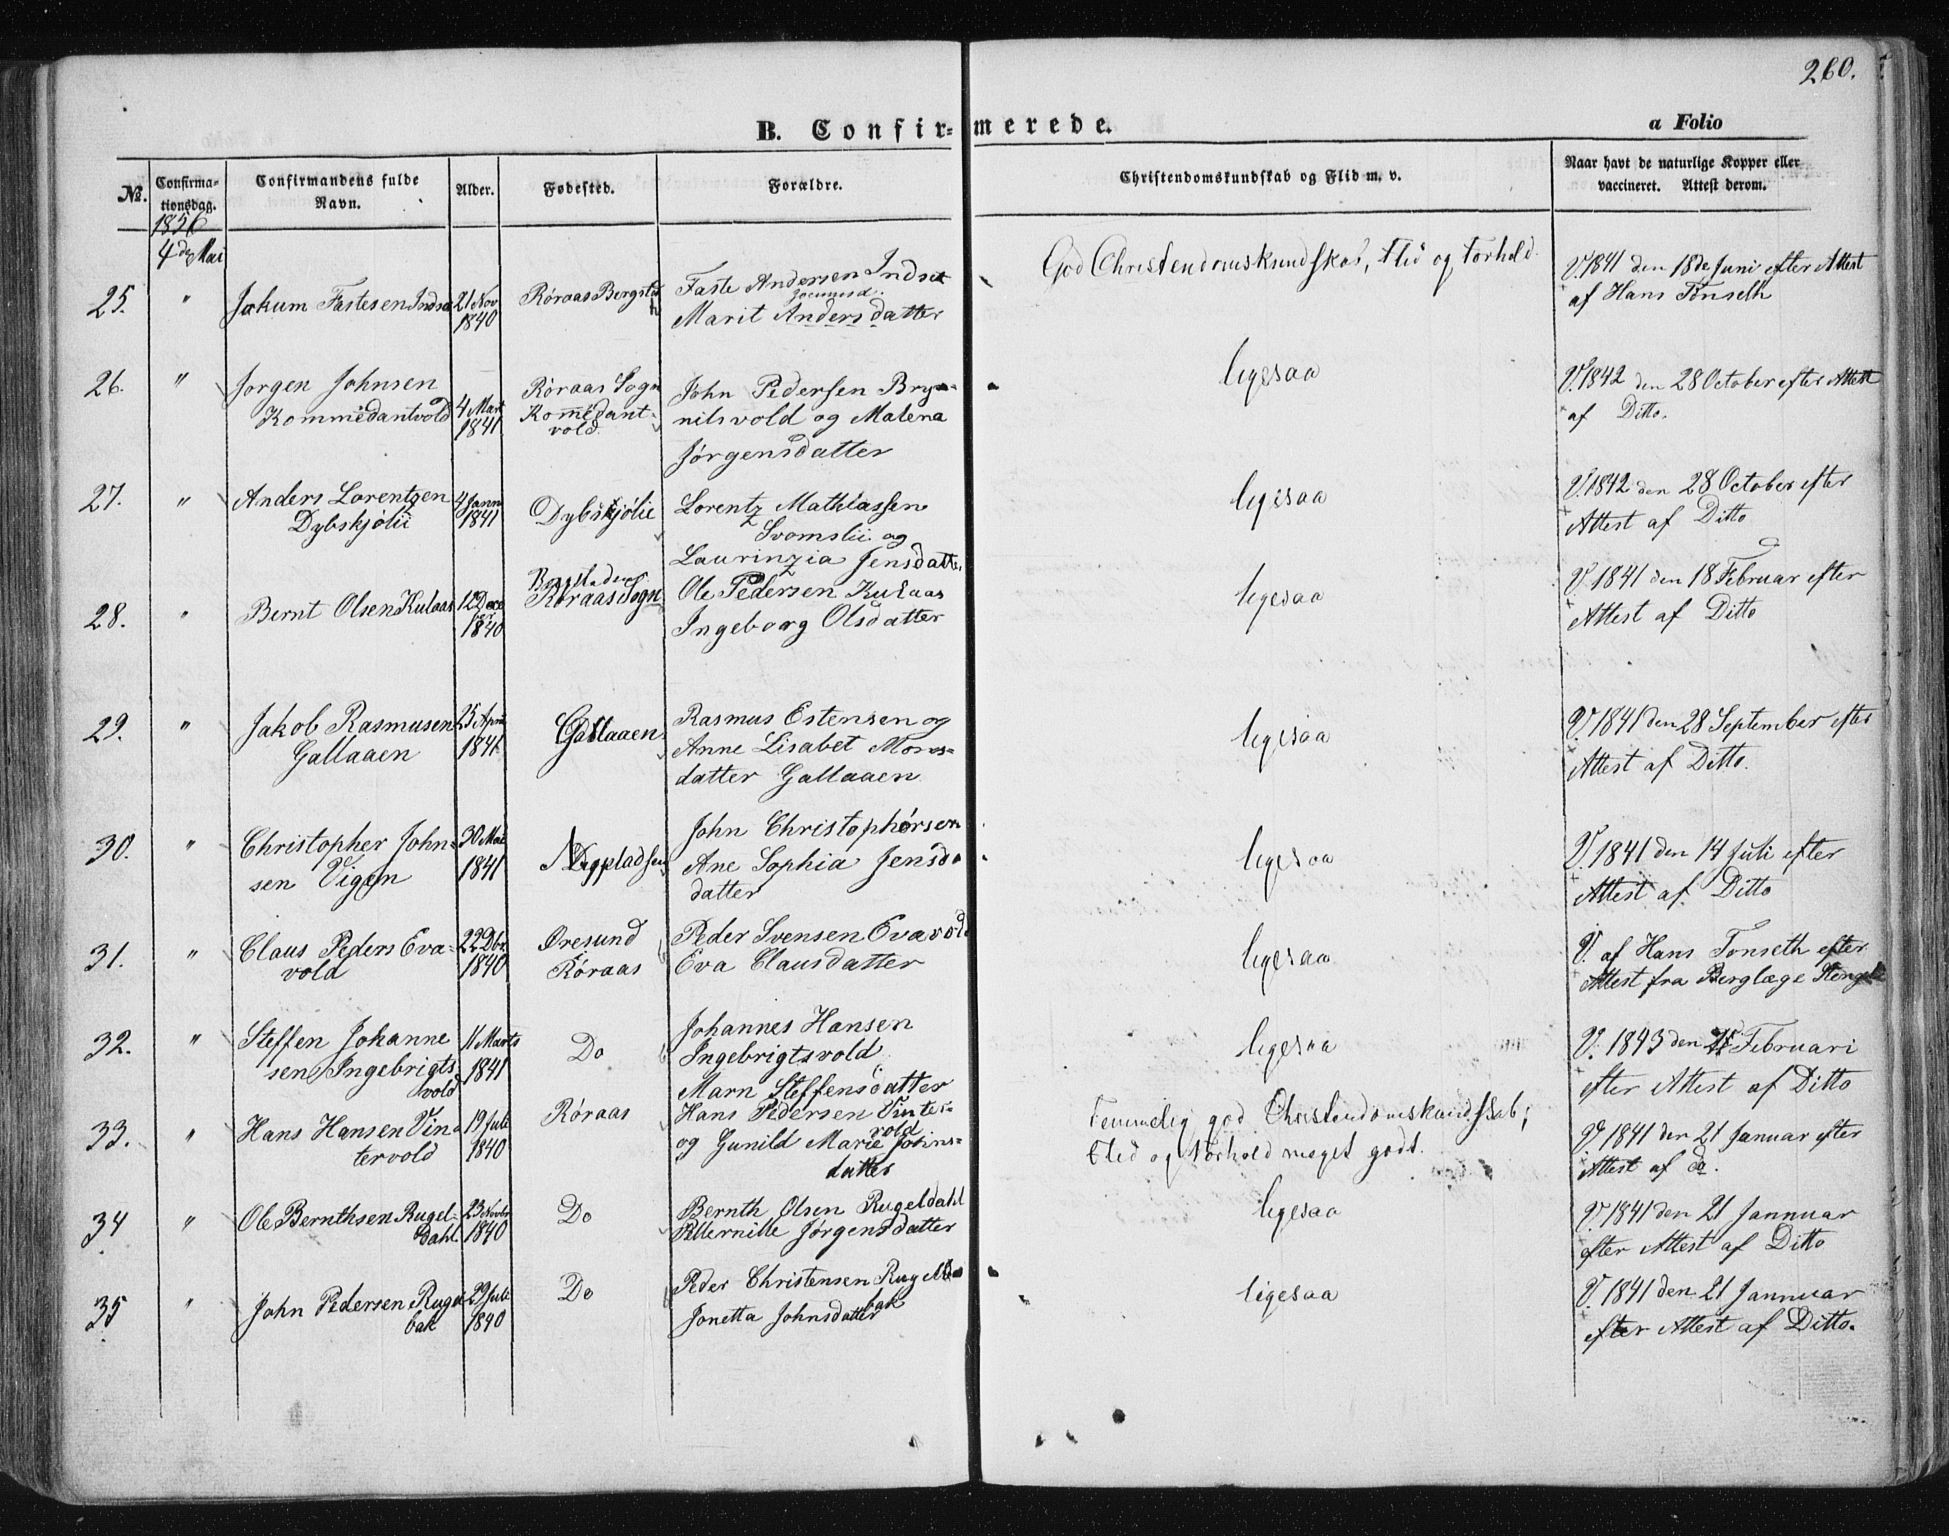 260.
B. Confirmerede.
a Folio
No.
Confirmationsdag.
Confirmandens fulde Navn.
Alder.
Fødested.
Forældre.
Christendomskundskab og Flid m. v.
Naar havt de naturlige Kopper eller vaccineret. Attest derom.
1856
4de Mai
25. " Jakum Fastesen Indset 21 Nov 1840 Röraas Bergstad
Faste Andersen Indset
Marit Andersdatter
God Christendomskundskab, Flid og Forhold
V. 1841 den 18de Juni efter Attest
af Hans Tönseth
26. " Jorgen Johnsen
Kommedantvold
4 Mart 1841
Röraas Sogn
Kommedant-
vold.
John Pedersen Bry-
nilsvold og Malena
Jörgensdatter
ligesaa
V. 1842 den 28 October efter Attest
af Ditto.
27. " Anders Lorentzen
Dybskjólii
4 Jann 1841
Dybskjólie
Lorentz Mathiassen
Svomslii og
Laurinzia Jensdatter
ligesaa
V. 1842 den 28 October efter
Attest af Ditto
28. " Bernt Olsen Kulaas
12 Dece 1840
Bergstaden
Röraas Sogn
Ole Pedersen Kulaas
Ingeborg Olsdatter
ligesaa
V. 1841 den 18 Februar efter
Attest af Ditto
29. " Jakob Rasmusen
Gallaaen
25 April 1841
Gallaaen
Rasmus Estensen og
Anne Lisabet Mons-
datter Gallaaen
ligesaa
V. 1841 den 28 September efter
Attest af Ditto.
30. " Christopher John-
sen Vigen
30 Mai 1841
Nypladsen
John Christophórsen
Ane Sophia Jens
datter
ligesaa
V. 1841 den 14 Juli efter
Attest af Ditto
31. " Claus Peders Eva-
vold
22 Dbr 1840
Øresund
Röraas
Peder Svensen Evavold
Eva Clausdatter
ligesaa
V. af Hans Tonseth efter
Attest fra Berglæge
32. " Steffen Johanne
sen Ingebrigts
vold
11 Marts 1841
Do
Johannes Hansen
Ingebrigtsvold
Marn Steffensdatter
ligesaa
V. 1843 den Februari
efter Attest af Ditto
33. " Hans Hansen Vin-
tervold
19 Juli 1840
Röraas
Hans Pedersen Vinter-
vold
og Gunild Marie Johns-
datter
Temmelig god Christendomskundskab;
Flid og Forhold meget godt.
V 1841 den 21 Januar efter
Attest af do.
34 " Ole Bernthsen Rugel-
dahl
23 Novbr 1840
Do
Bernth Olsen Rugeldahl
Pellernille Jørgensdatter
ligesaa
V. 1841 den 21 Jannuar
efter Attest af Ditto
35 " John Pedersen Rugel
bak
29 Juli 1840
Do
Peder Christensen Rugel
bak
Jonetta Johnsdatter
ligesaa
V. 1841 den 21 Jannuar
efter Attest af Ditto.